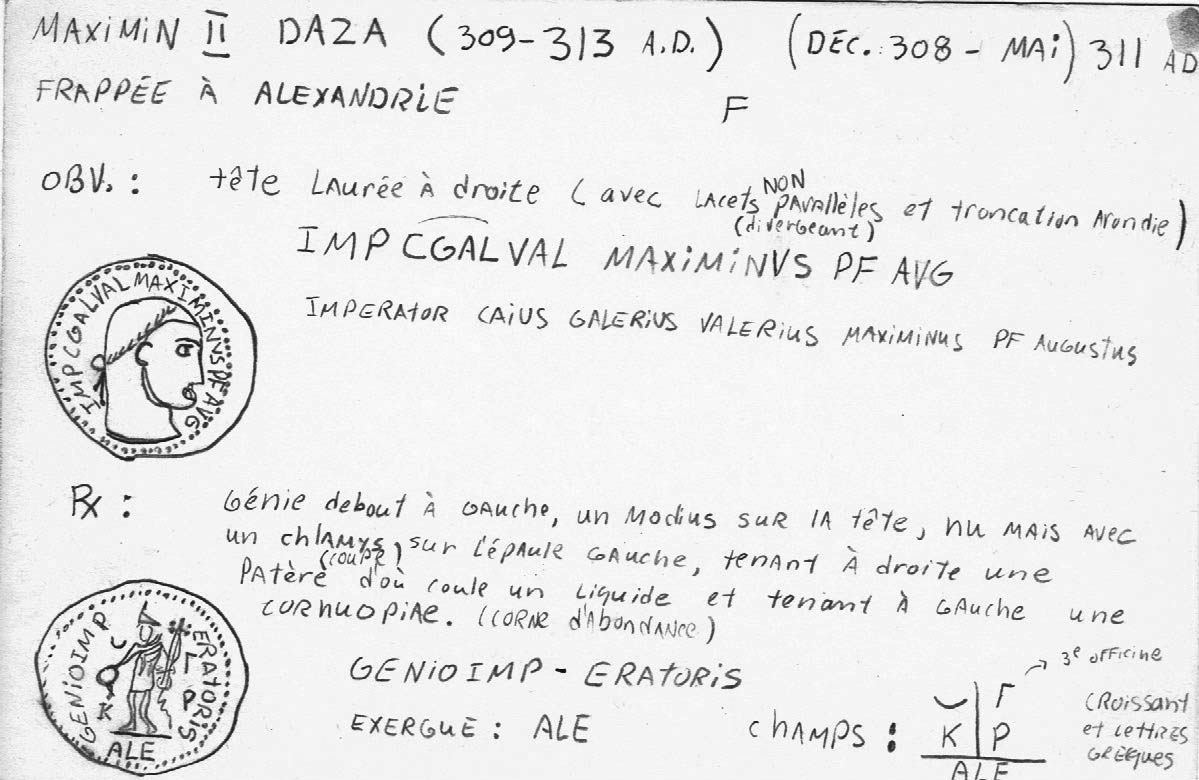 MAXIMIN II DAZA (309-313 A.D.) (DÉC. 308 - MAI) 311 AD
FRAPPÉE À ALEXANDRIE F
OBV. : tête LAurée À droite (avec LAcets NON PArAllèles et troncation Arondie)
(divergeant)
IMP CGAL VAL MAXIMINVS PF AVG
IMPERATOR CAIUS GALERIUS VALERIUS MAXIMINUS PF AUGUSTUS
IMPCGALVALMAXIMINVSPFAVG
RX : Génie debout À GAuche, un Modius sur lA tête, nu MAis Avec
un chlAMys sur l'épAule GAuche, tenAnt À droite une
PAtère (coupe) d'où coule un Liquide et tenant À GAuche une
CORNUOPIAE. (CORNE d'AbondANce)
GENIOIMP ERATORIS
K Γ P
ALE
GENIOIMP - ERATORIS
EXERGUE : ALE
CHAMPS : Γ
K P
ALE
3e officine
CRoissant
et LettRes
GREcques